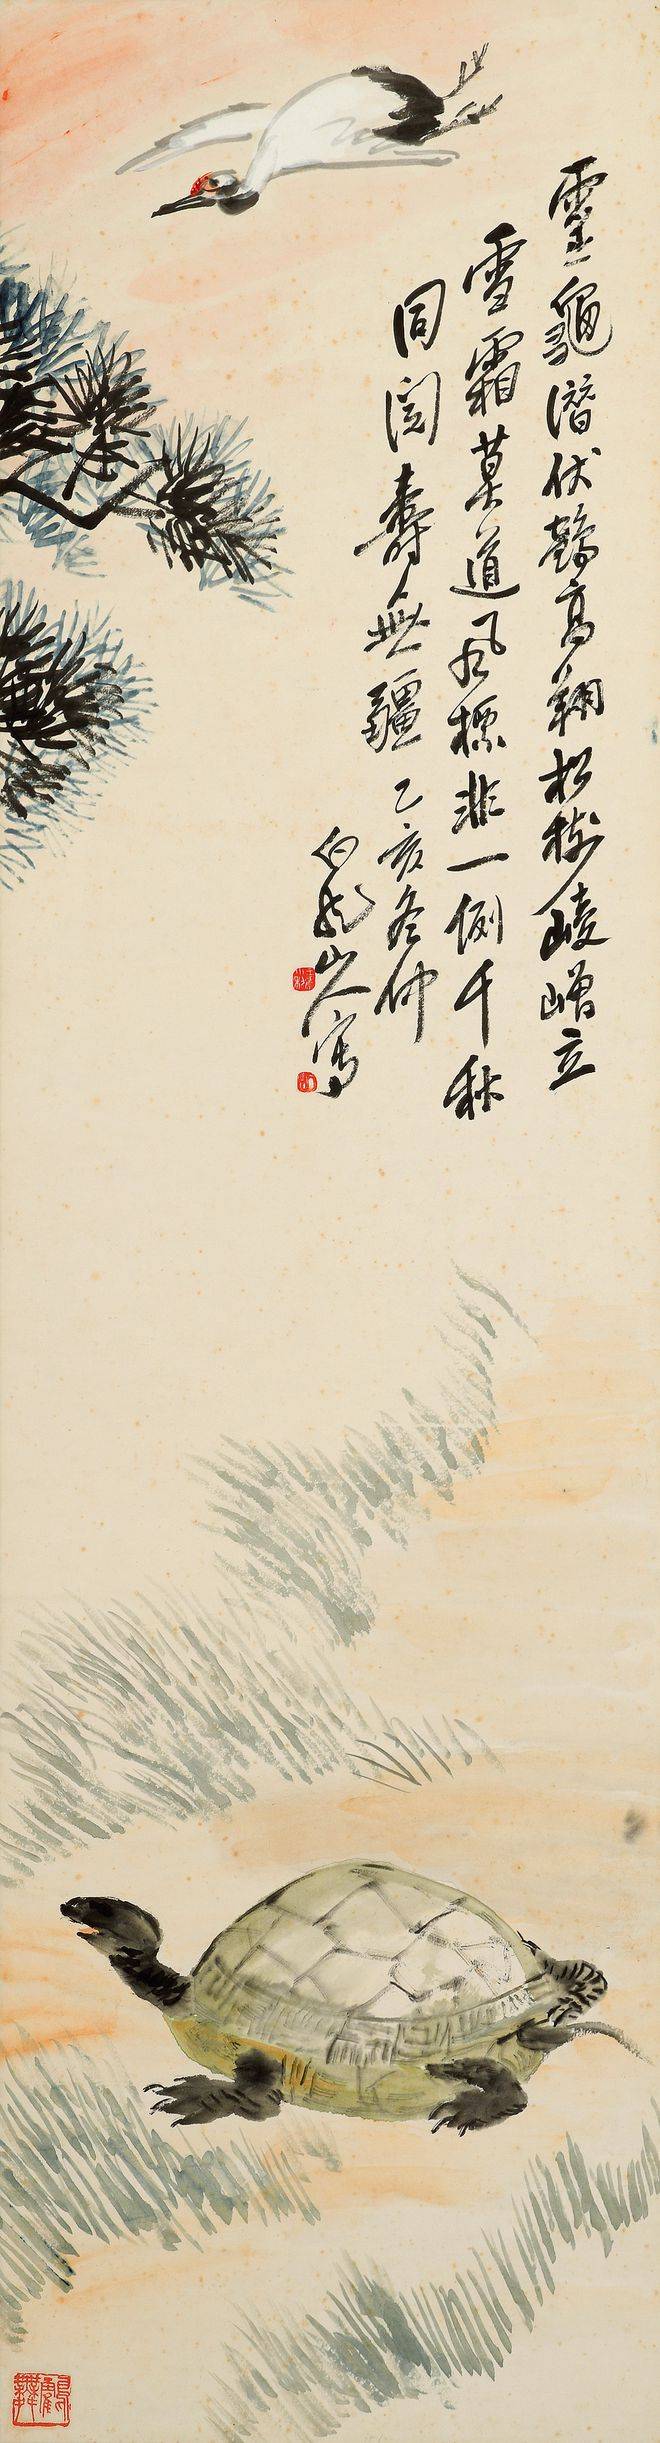 靈龜潛伏鶴高翔松樹崚嶒立
雪霜莫道風標非一例千秋
同閱壽無疆乙亥冬仲
白龍山人寫